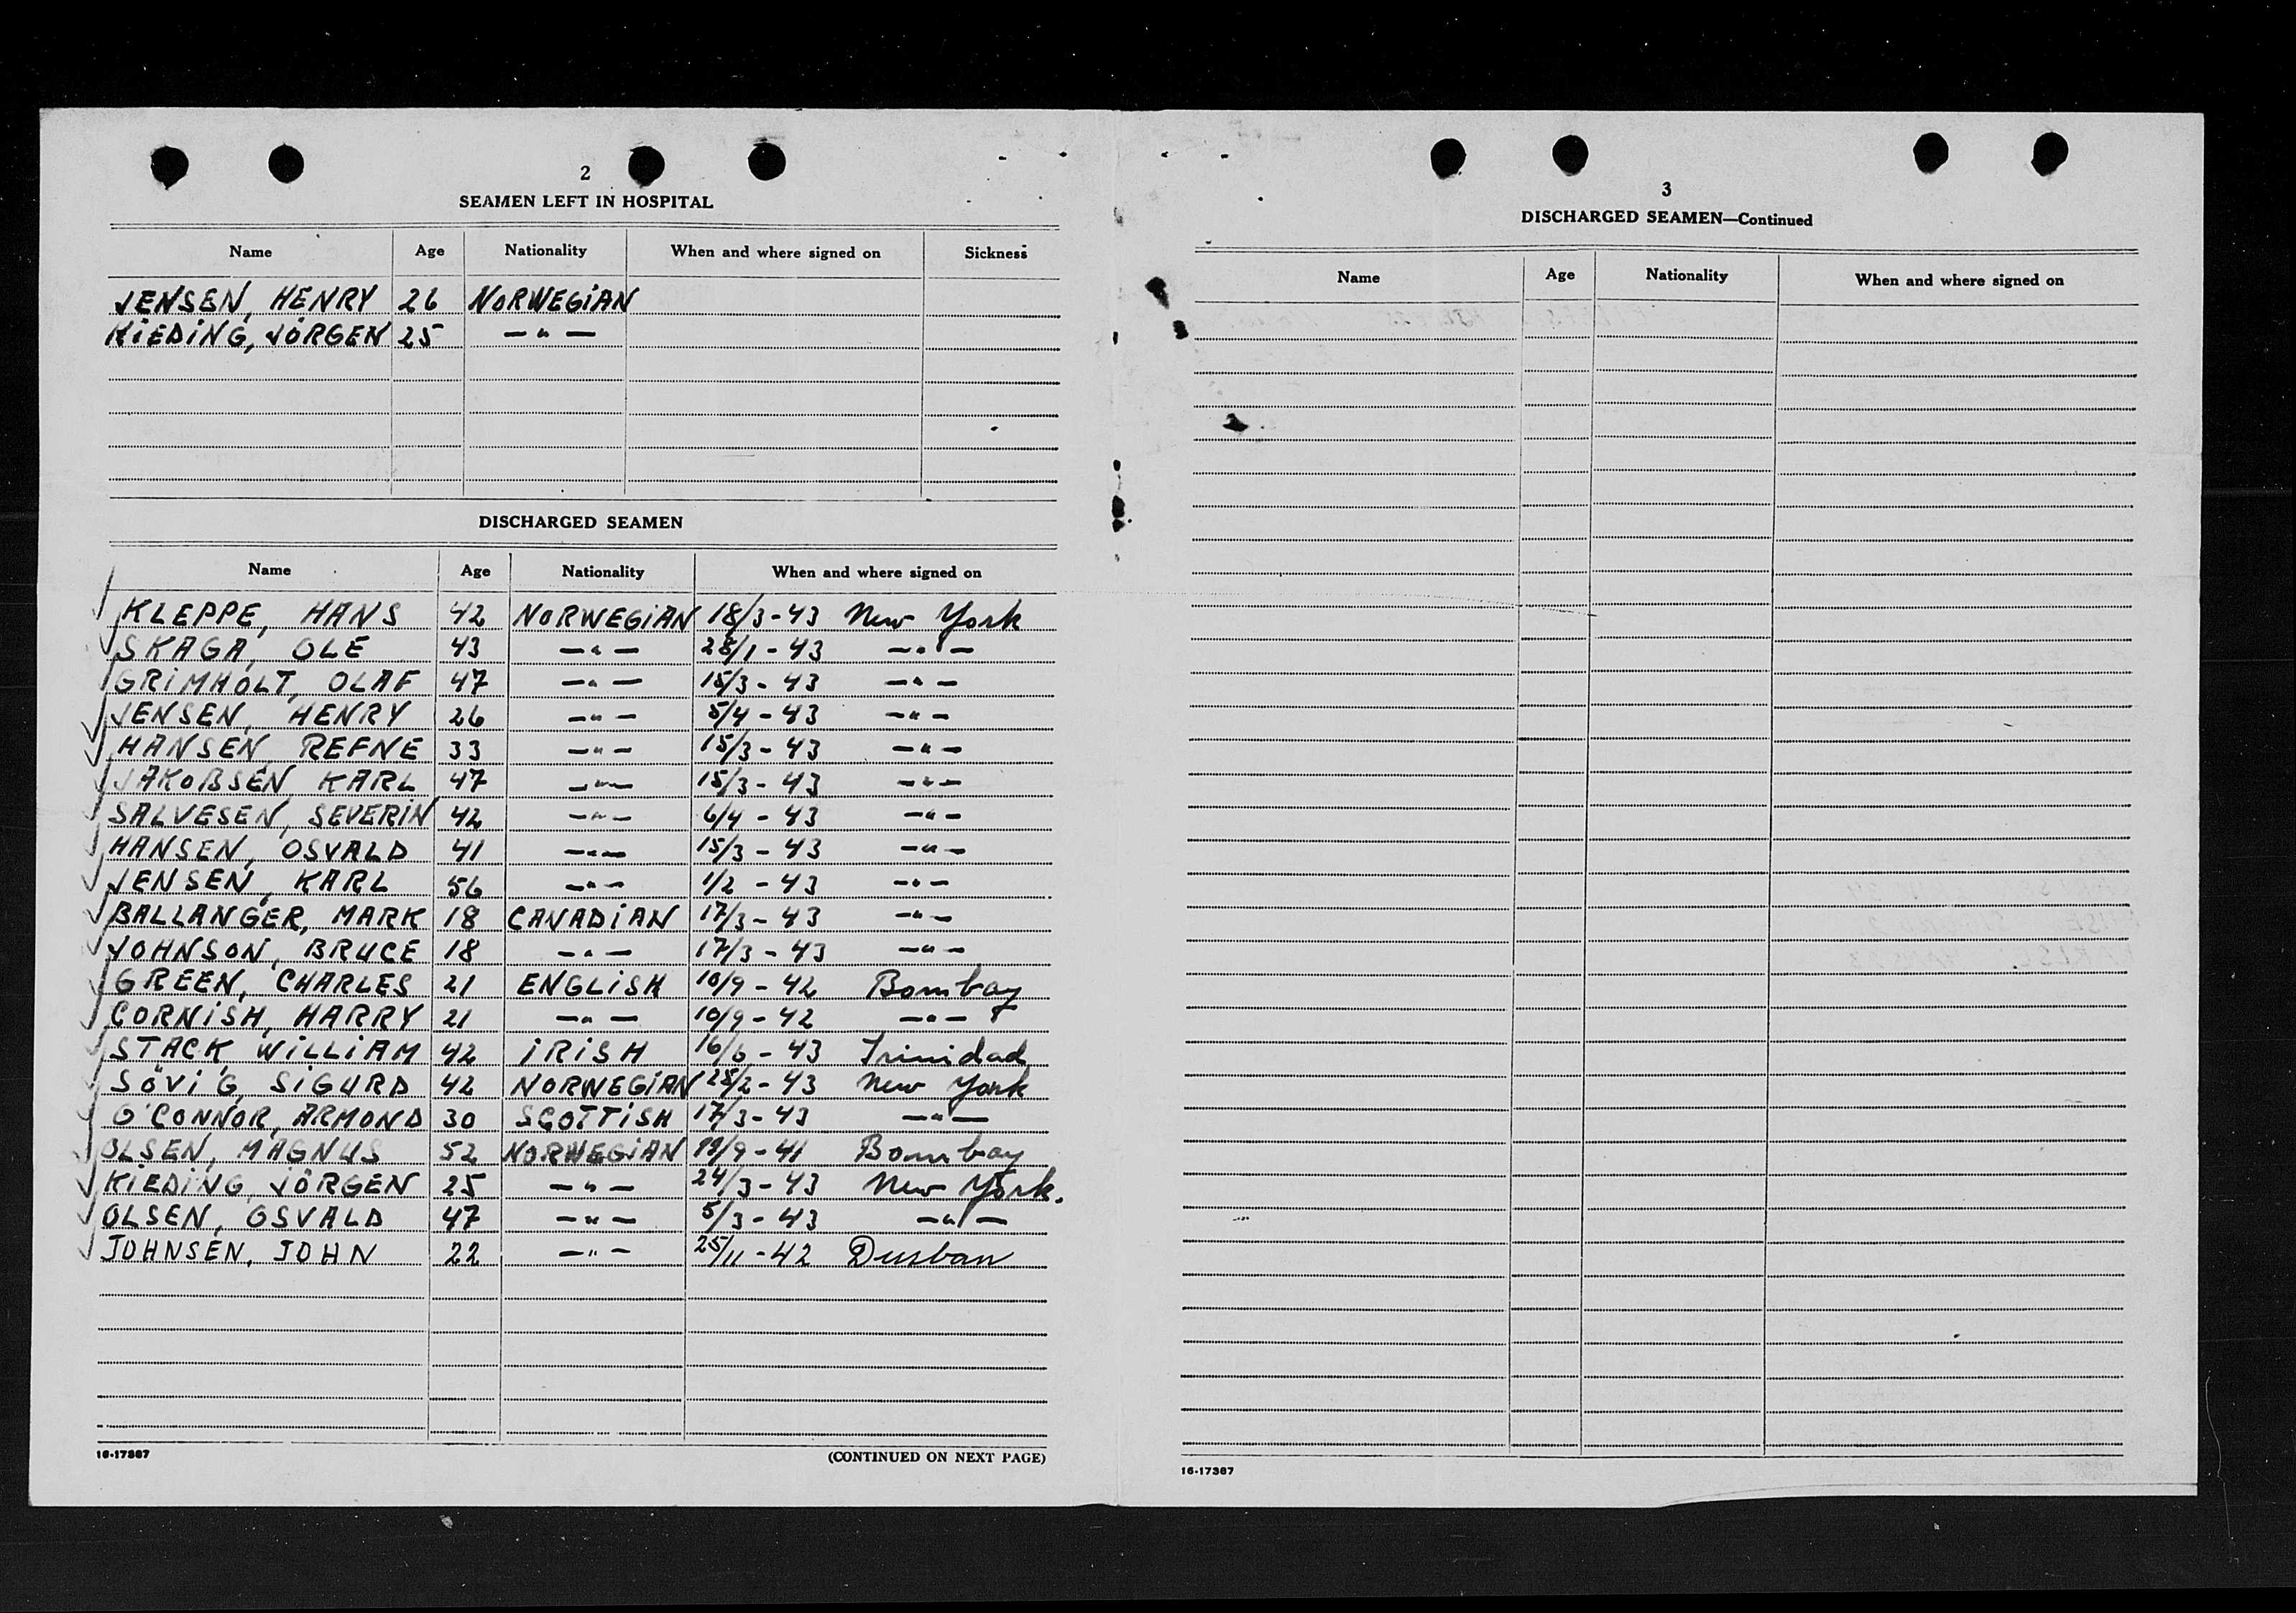 2
SEAMEN LEFT IN HOSPITAL
Name Age Nationality When and where signed on Sickness
JENSEN, HENRY 26 NORWEGIAN
KIEDING, JÖRGEN 25 — " —
DISCHARGED SEAMEN
Name Age Nationality When and where signed on
KLEPPE, HANS 42 NORWEGIAN 18/3-43 New York
SKAGA, OLE 43 — " — 28/1-43 — " —
GRIMHOLT, OLAF 47 — " — 15/3-43 — " —
JENSEN, HENRY 26 — " — 5/4-43 — " —
HANSEN, REFNE 33 — " — 15/3-43 — " —
JAKOBSEN KARL 47 — " — 15/3-43 — " —
SALVESEN, SEVERIN 42 — " — 6/4-43 — " —
HANSEN, OSVALD 41 — " — 15/3-43 — " —
JENSEN, KARL 56 — " — 1/2-43 — " —
BALLANGER, MARK 18 CANADIAN 17/3-43 — " —
JOHNSON, BRUCE 18 — " — 17/3-43 — " —
GREEN, CHARLES 21 ENGLISH 10/9-42 Bombay
CORNISH, HARRY 21 — " — 10/9-42 — " —
STACK, WILLIAM 42 IRISH 16/6-43 Trinidad
SÖVIG, SIGURD 42 NORWEGIAN 28/2-43 New York
O'CONNOR, ARMOND 30 SCOTTISH 17/3-43 — " —
OLSEN, MAGNUS 52 NORWEGIAN /9-41 Bombay
KIEDING, JÖRGEN 25 — " — 24/3-43 New York.
OLSEN, OSVALD 47 — " — 5/3-43 — " —
JOHNSEN, JOHN 22 — " — 25/11-42 Durban
16-17367 (CONTINUED ON NEXT PAGE)
3
DISCHARGED SEAMEN—Continued
Name Age Nationality When and where signed on
16-17367